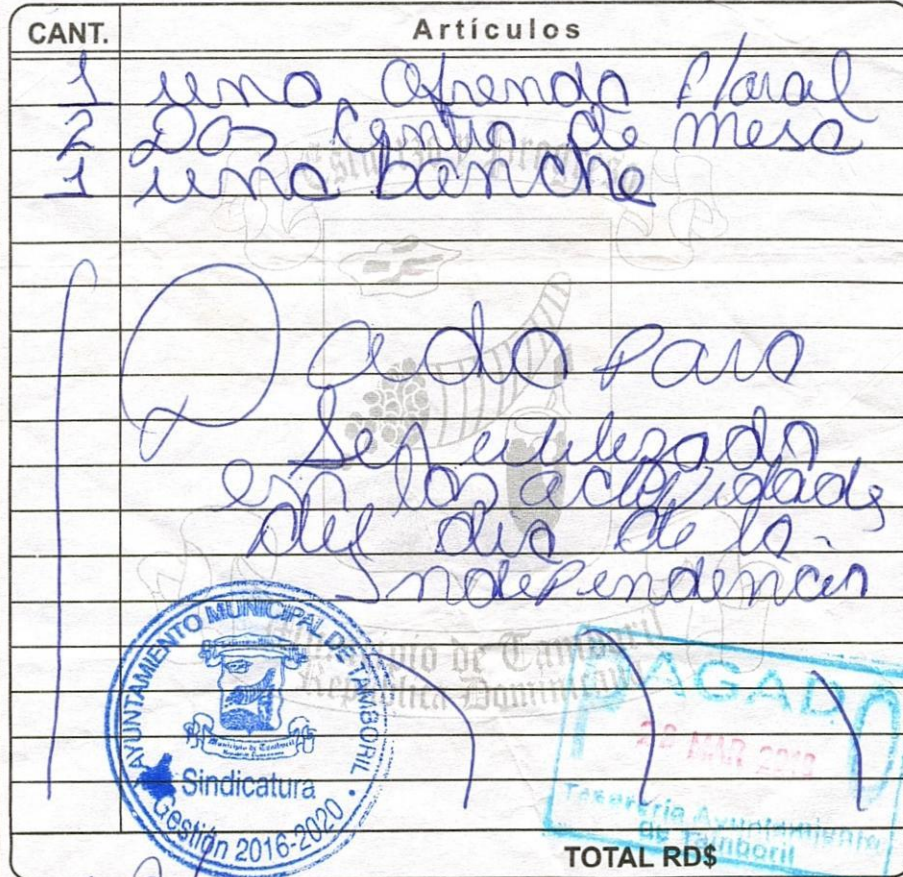 CANT. Artículos
1 una Ofrenda floral
2 Dos Centro de mesa
1 una banche
Esfuerzo y Progreso
para
Ser utilizado
en las actividade
del dia de la
Independencia
Municipio de Tamboril
República Dominicana
AYUNTAMIENTO MUNICIPAL DE TAMBORIL
Municipio de Tamboril
Sindicatura
Gestión 2016-2020
PAGADO
MAR
Tesorería Ayuntamiento
de Tamboril
TOTAL RD$